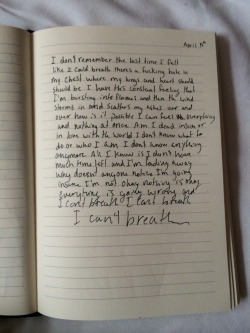 April 11th
I don't remember the last time I felt
like I could breath theres a fucking hole in
my chest where my lungs and heart should
should be. I have this constant feeling that
I'm bursting into flames and then the wind
storms in and scatters my ashes over and
over how is it possible I can feel everything
and nothing at once. Am I dead inside or
in love with the world I don't know what to
do or who I am. I don't know anything
anymore. All I know is I don't have
much time left and I'm fading away
why doesn't anyone notice I'm going
insane I'm not okay nothing is okay
Everything is going wrong and
I can't breath I can't breath
I can't breath